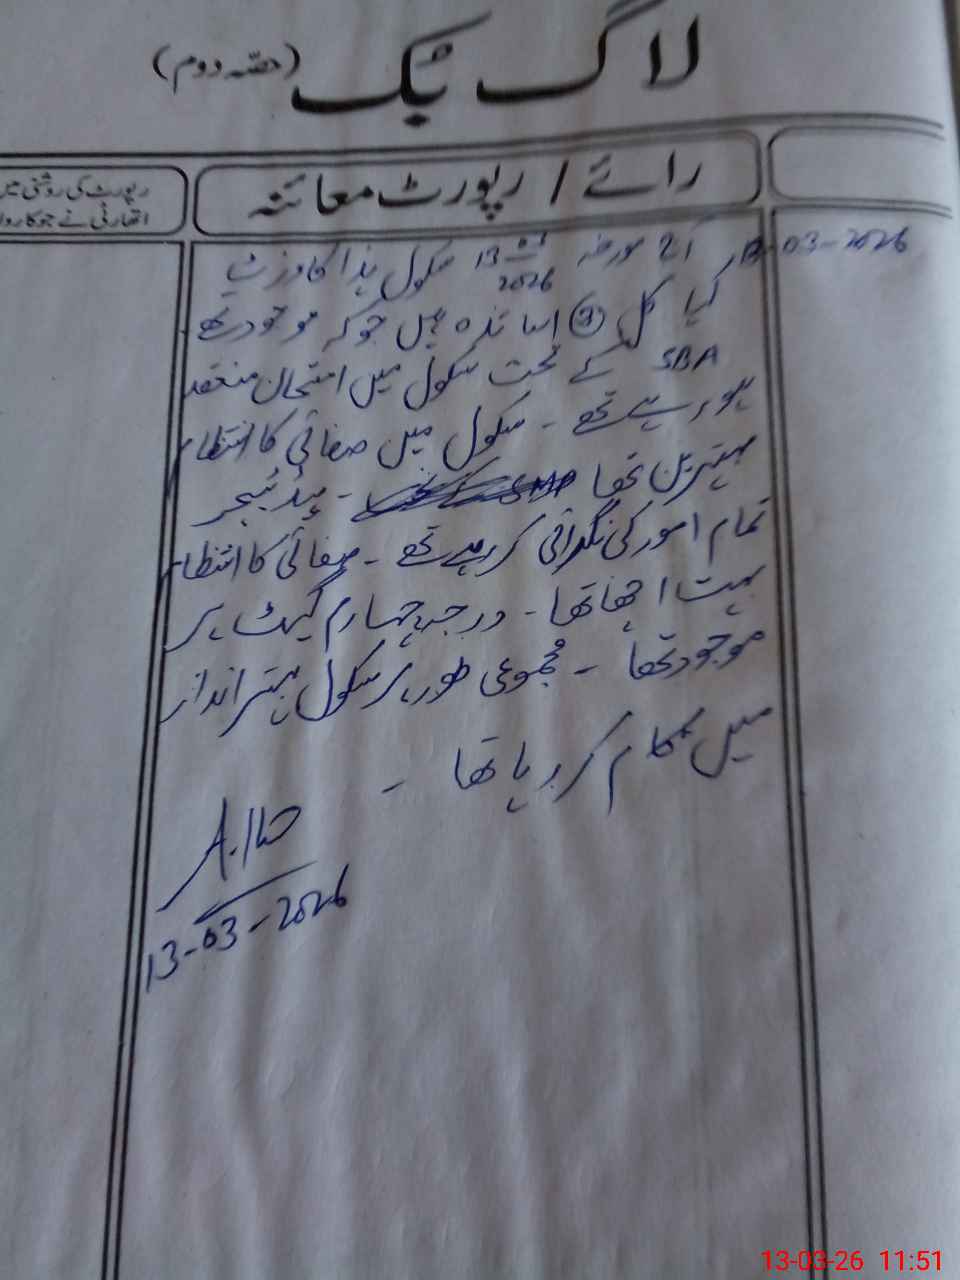 لاگ بک (حصہ دوم)
رائے / رپورٹ معائنہ
رپورٹ کی روشنی میں
اتھارٹی نے جو کاروا
13-03-2026
آج مورخہ 13-03-2026 سکول ہذا کا وزٹ
کیا کل اساتذہ ہیں جو کہ موجود تھے
SBA کے تحت سکول میں امتحان منعقد
ہو رہے تھے ۔ سکول میں صفائی کا انتظام
بہترین تھا ۔ ہیڈ ٹیچر
تمام امور کی نگرانی کر رہے تھے ۔ صفائی کا انتظام
بہت اچھا تھا ۔ درجہ چہارم گیٹ پر
موجود تھا ۔ مجموعی طور پر سکول بہتر انداز
میں کام کر رہا تھا ۔
13-03-2026
13-03-26 11:51